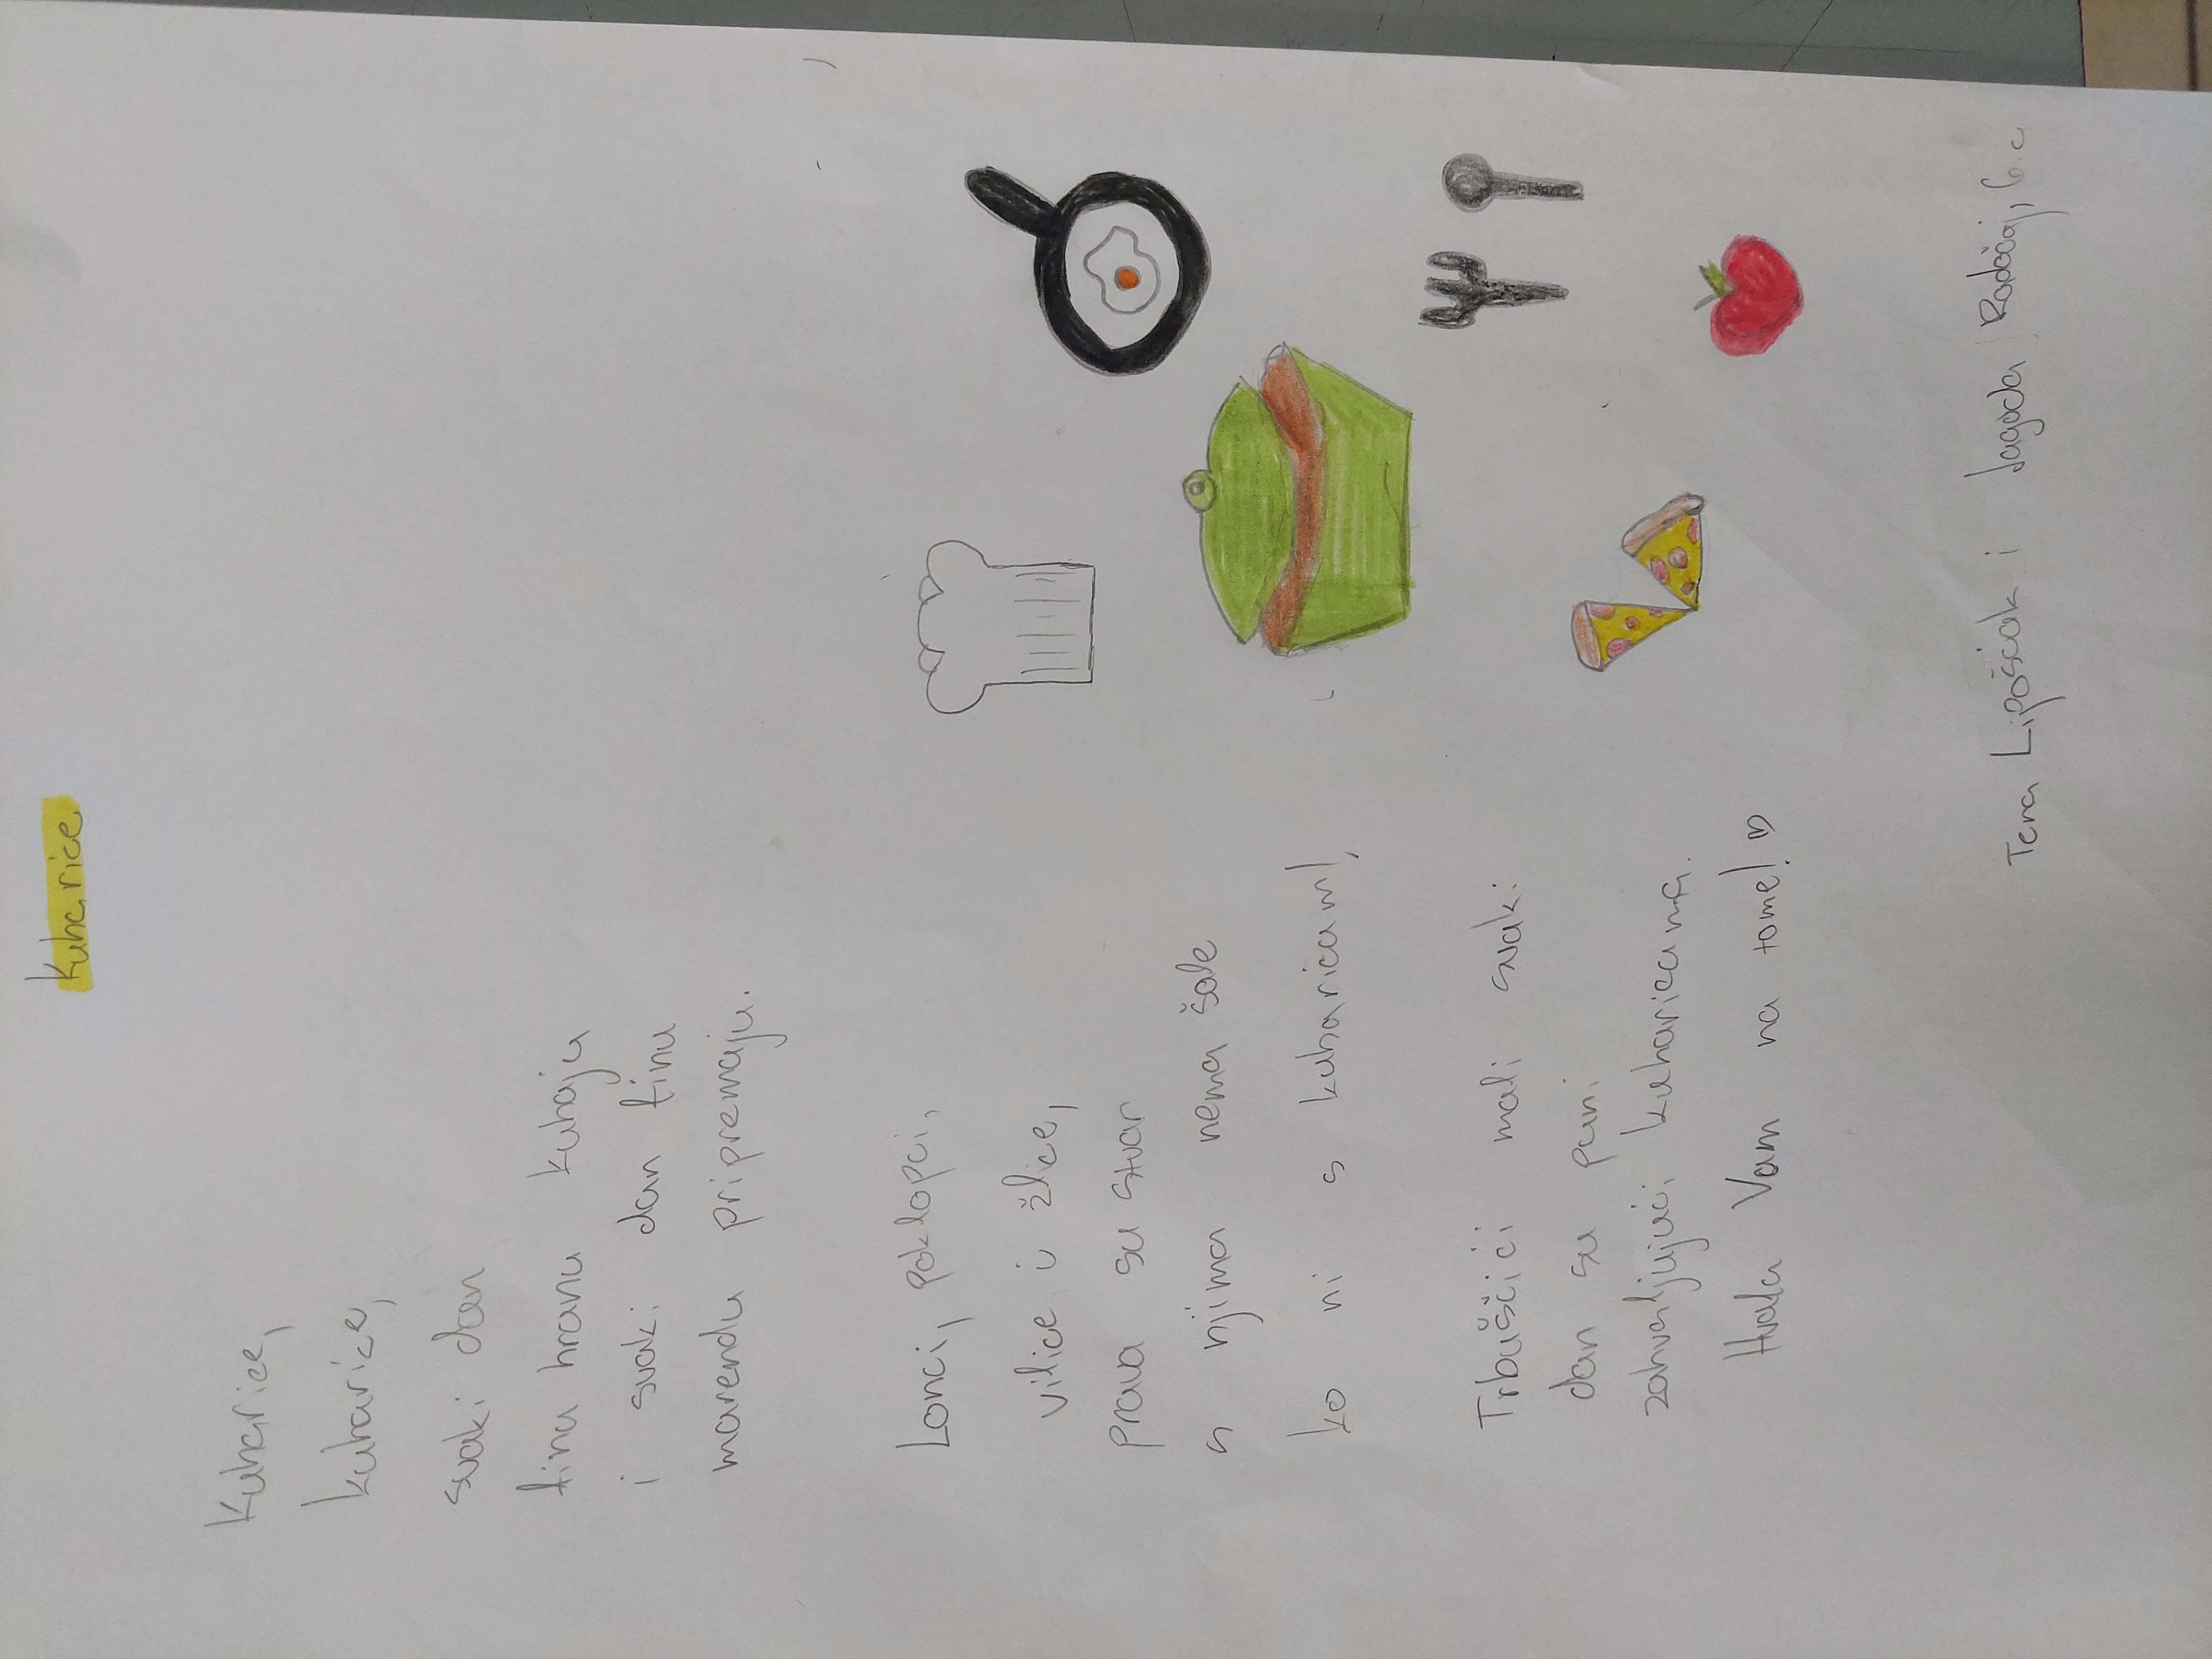 Kuharice
Kuharice,
kuharice,
svaki dan
finu hranu kuhaju
i svaki dan finu
marendu pripremaju.
Lonci, poklopci,
vilice i žlice,
prava su stvar
s njima nema šale
ko ni s kuharicam!,
Trbuščići mali svaki
dan su puni
zahvaljujući kuharicama.
Hvala Vam na tome! ♡
Tena Lipošćak i Jagoda Radočaj, 6.c